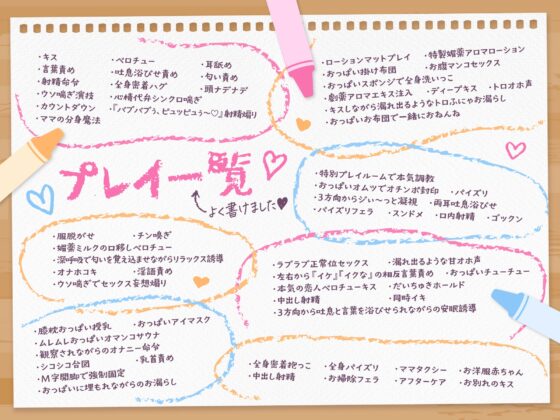 ・キス
・言葉責め
・射精台台
・ウソ喘ぎ演技
・カウントダウン
・ママの分身魔法
・ベロチュー
・吐息浴びせ責め
・全身密着ハグ
・心構え弁シンクロ喘ぎ
・『パブパブぅ、ピュッピュぅ～♡』射精煽り
・耳舐め
・匂い責め
・頭ナデナデ
・ローションマットプレイ
・特製媚薬アロマローション
・おっぱい掛け布団
・お腹マンコセックス
・おっぱいスポンジで全身洗いっこ
・劇薬アロマエキス注入
・ディープキス
・トロオホ声
・キスしながら漏れ出るようなトロふにゃお漏らし
・おっぱいお布団で一緒におねんね
プレイ一覧
よく書けました♥
・特別プレイルームで本気調教
・おっぱいオムツでオチンポ封印
・パイズリ
・3方向からジぃ～っと凝視
・両耳吐息浴びせ
・パイズリフェラ
・スンドメ
・口内射精
・ゴックン
・服脱がせ
・チン嗅ぎ
・媚薬ミルクの口移しベロチュー
・深呼吸で匂いを覚え込ませながらリラックス誘導
・オナホコキ
・淫語責め
・ウソ喘ぎでセックス妄想煽り
・ラブラブ正常位セックス
・漏れ出るような甘オホ声
・左右から『イケ』『イクな』の相反言葉責め
・おっぱいチューチュー
・本気の恋人ベロチューキス
・だいちゅきホールド
・中出し射精
・同時イキ
・3方向から吐息と言葉を浴びせられながらの安眠誘導
・膝枕おっぱい授乳
・おっぱいアイマスク
・ムレムレおっぱいオマンコサウナ
・観察されながらのオナニー台台
・シコシコ台図
・乳首責め
・M字開脚で強制固定
・おっぱいに埋もれながらのお漏らし
・全身密着抱っこ
・全身パイズリ
・ママタクシー
・お洋服赤ちゃん
・中出し射精
・お掃除フェラ
・アフターケア
・お別れのキス